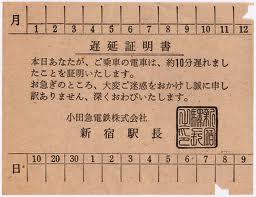 月 1 2 3 4 5 6 7 8 9 10 11 12
遅延証明書
本日あなたが、ご乗車の電車は、約10分遅れまし
たことを証明いたします。
お急ぎのところ、大変ご迷惑をおかけし誠に申し
訳ありません、深くおわびいたします。
小田急電鉄株式会社
新宿駅長
新宿駅長之印
日 10 20 30 1 2 3 4 5 6 7 8 9